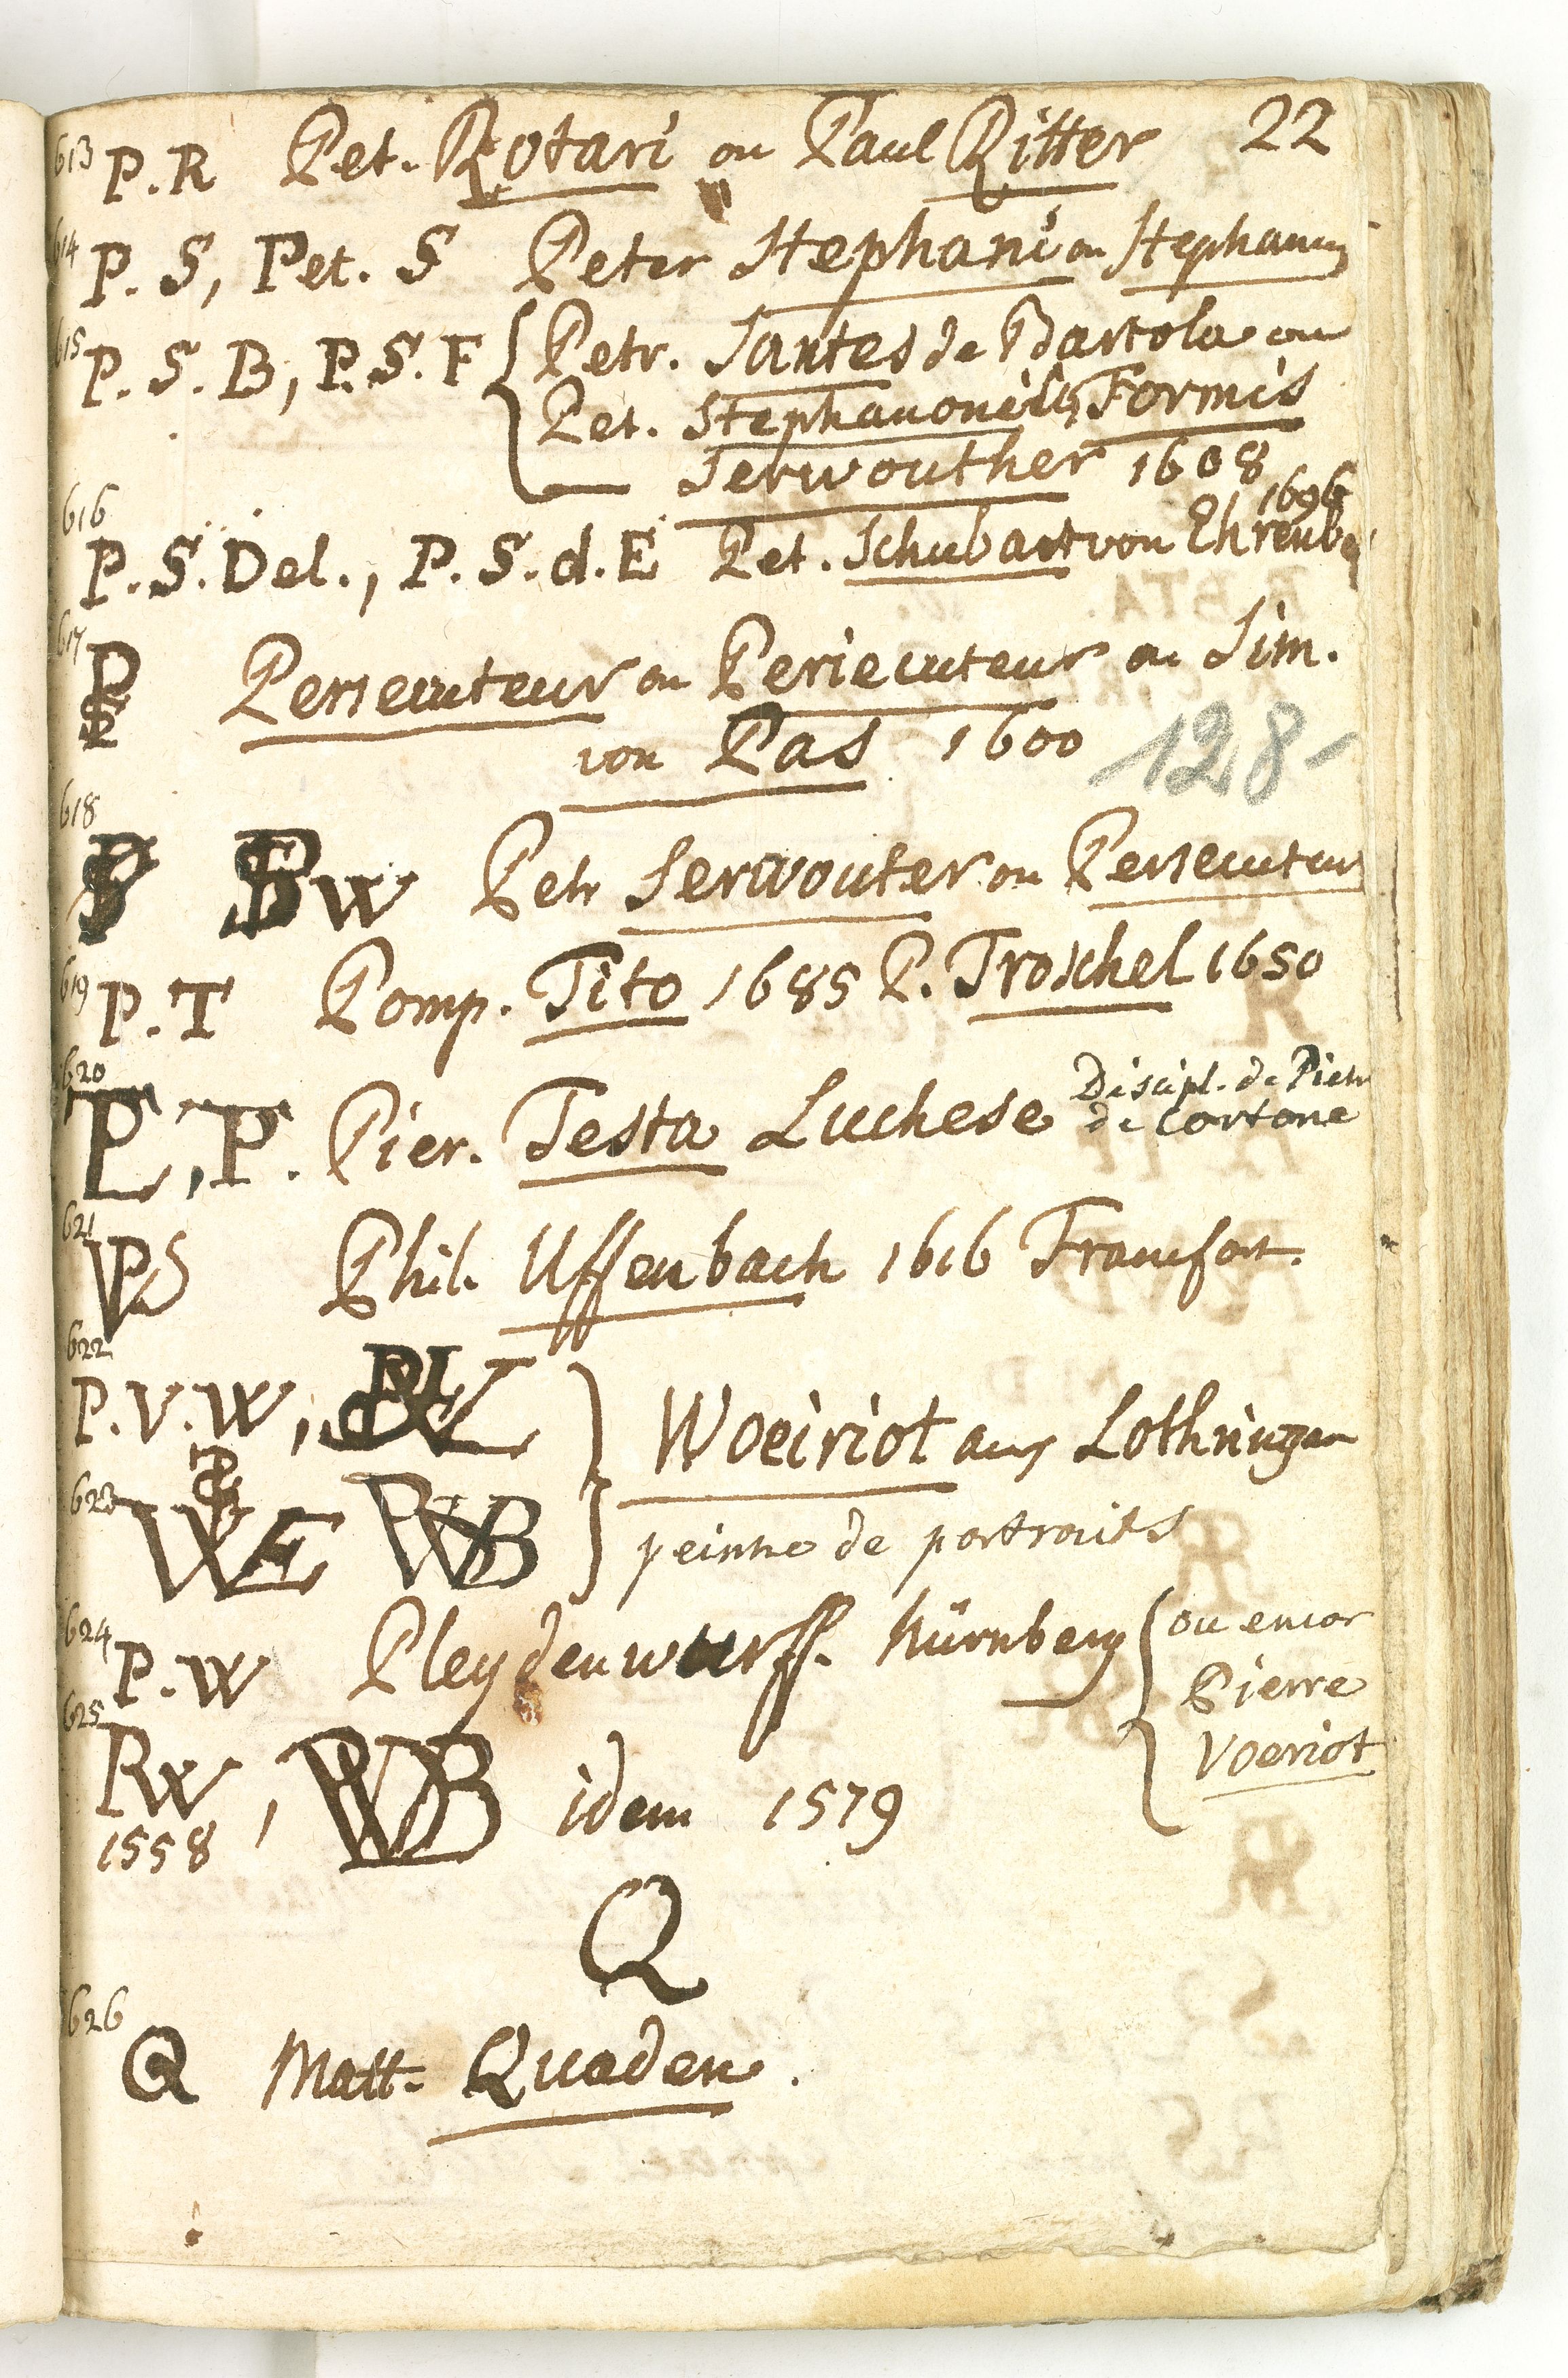 613 P.R Pet. Rotari ou Paul Ritter 22
614 P. S, Pet. S Peter Stephani ou Stephanus
615 P. S. B, P. S. F Petr. Santes de Bartola ou
Pet. Stephanonius, Formis
Serwouther 1608
616 1696
P.S.Del., P.S.d.E Pet. Schubart von Ehrenberg
617 PS Persecuteur ou Periecuteur ou Sim.
von Pas 1600
128-
618
PS PSW Petr Serwouter ou Persecuteur
619 P.T Pomp. Tito 1685 P. Troschel 1650
620 Discipl. de Pietr
P, P. Pier. Testa Luchese de Cortone
621
VP Phil. Uffenbach 1616 Francfort.
622
P.V.W, Woeiriot aus Lothringen
623 peintre de portraits
PWB
624 P.W Pleydenwurff. Nürnberg ou encor
Pierre
Voeriot
625 PW, PWB idem 1579
1558
Q
626
Q Matt. Quaden.